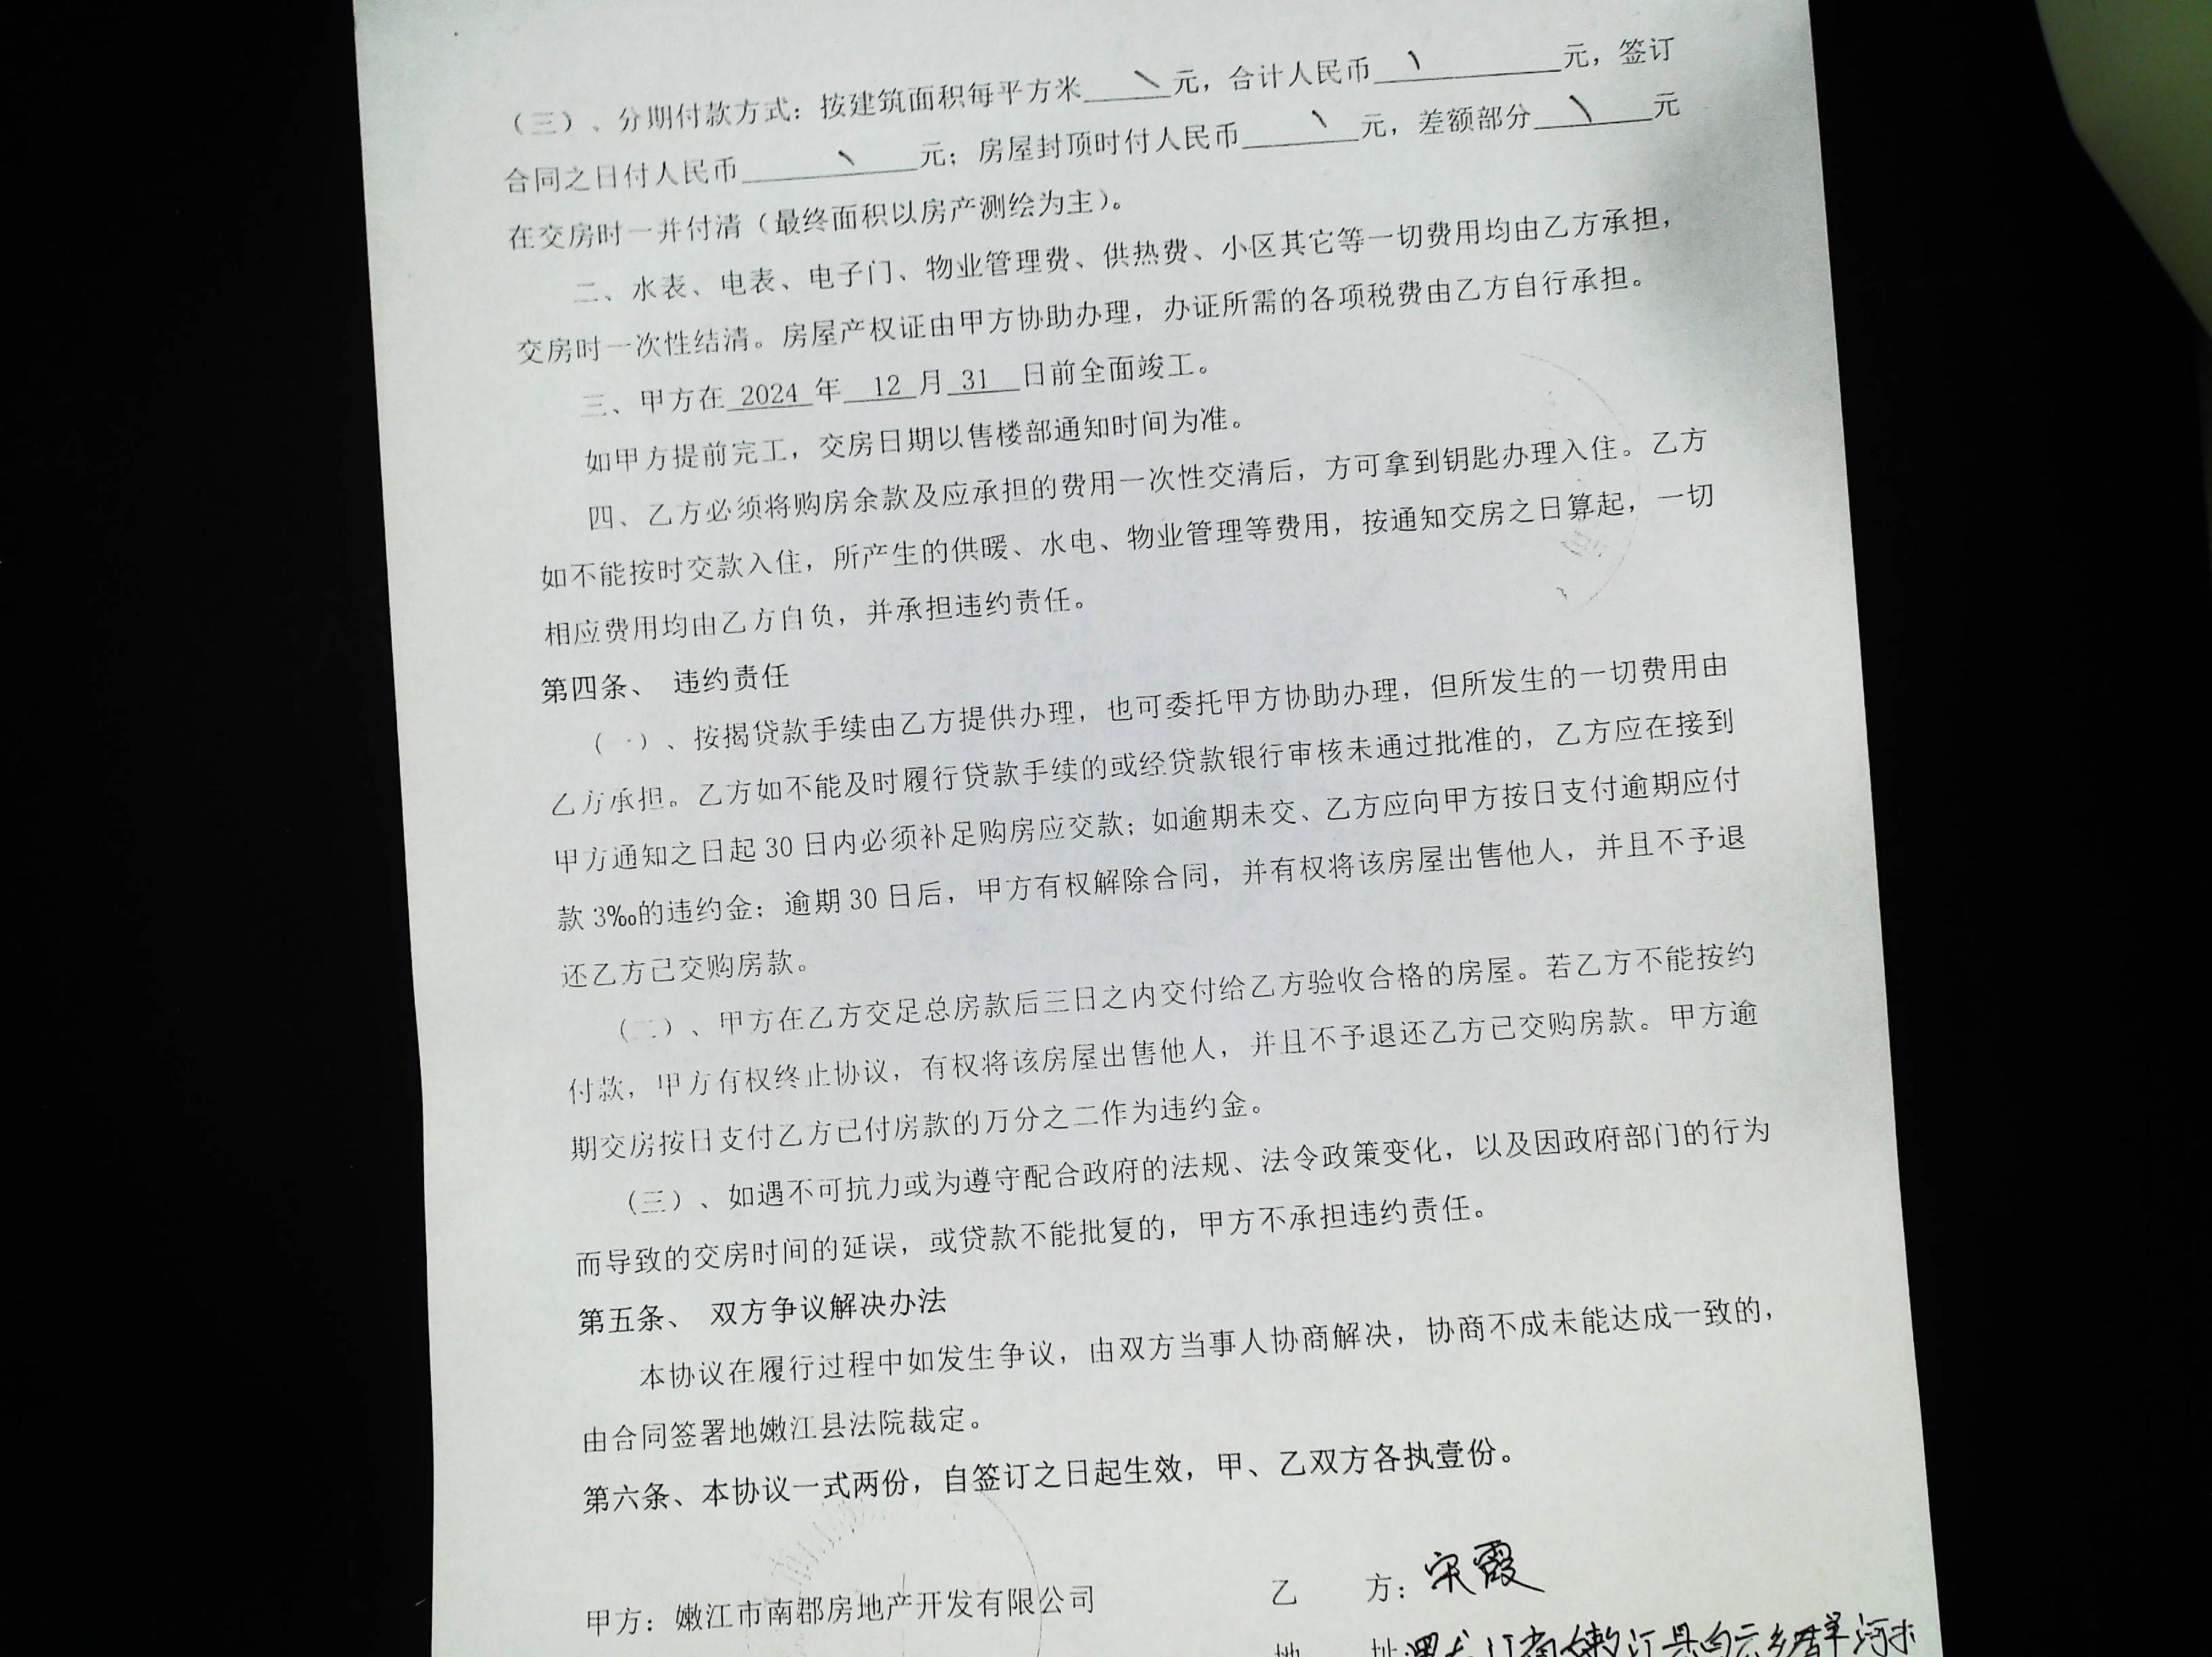 （三）、分期付款方式：按建筑面积每平方米______元，合计人民币______元，签订
合同之日付人民币______元；房屋封顶时付人民币______元，差额部分______元
在交房时一并付清（最终面积以房产测绘为主）。
二、水表、电表、电子门、物业管理费、供热费、小区其它等一切费用均由乙方承担，
交房时一次性结清。房屋产权证由甲方协助办理，办证所需的各项税费由乙方自行承担。
三、甲方在 2024 年 12 月 31 日前全面竣工。
如甲方提前完工，交房日期以售楼部通知时间为准。
四、乙方必须将购房余款及应承担的费用一次性交清后，方可拿到钥匙办理入住。乙方
如不能按时交款入住，所产生的供暖、水电、物业管理等费用，按通知交房之日算起，一切
相应费用均由乙方自负，并承担违约责任。
第四条、 违约责任
（一）、按揭贷款手续由乙方提供办理，也可委托甲方协助办理，但所发生的一切费用由
乙方承担。乙方如不能及时履行贷款手续的或经贷款银行审核未通过批准的，乙方应在接到
甲方通知之日起 30 日内必须补足购房应交款；如逾期未交、乙方应向甲方按日支付逾期应付
款 3‰的违约金；逾期 30 日后，甲方有权解除合同，并有权将该房屋出售他人，并且不予退
还乙方已交购房款。
（二）、甲方在乙方交足总房款后三日之内交付给乙方验收合格的房屋。若乙方不能按约
付款，甲方有权终止协议，有权将该房屋出售他人，并且不予退还乙方已交购房款。甲方逾
期交房按日支付乙方已付房款的万分之二作为违约金。
（三）、如遇不可抗力或为遵守配合政府的法规、法令政策变化，以及因政府部门的行为
而导致的交房时间的延误，或贷款不能批复的，甲方不承担违约责任。
第五条、 双方争议解决办法
本协议在履行过程中如发生争议，由双方当事人协商解决，协商不成未能达成一致的，
由合同签署地嫩江县法院裁定。
第六条、本协议一式两份，自签订之日起生效，甲、乙双方各执壹份。
甲方：嫩江市南郡房地产开发有限公司 乙 方：宋霞
地 址 黑龙江省嫩江县白云乡